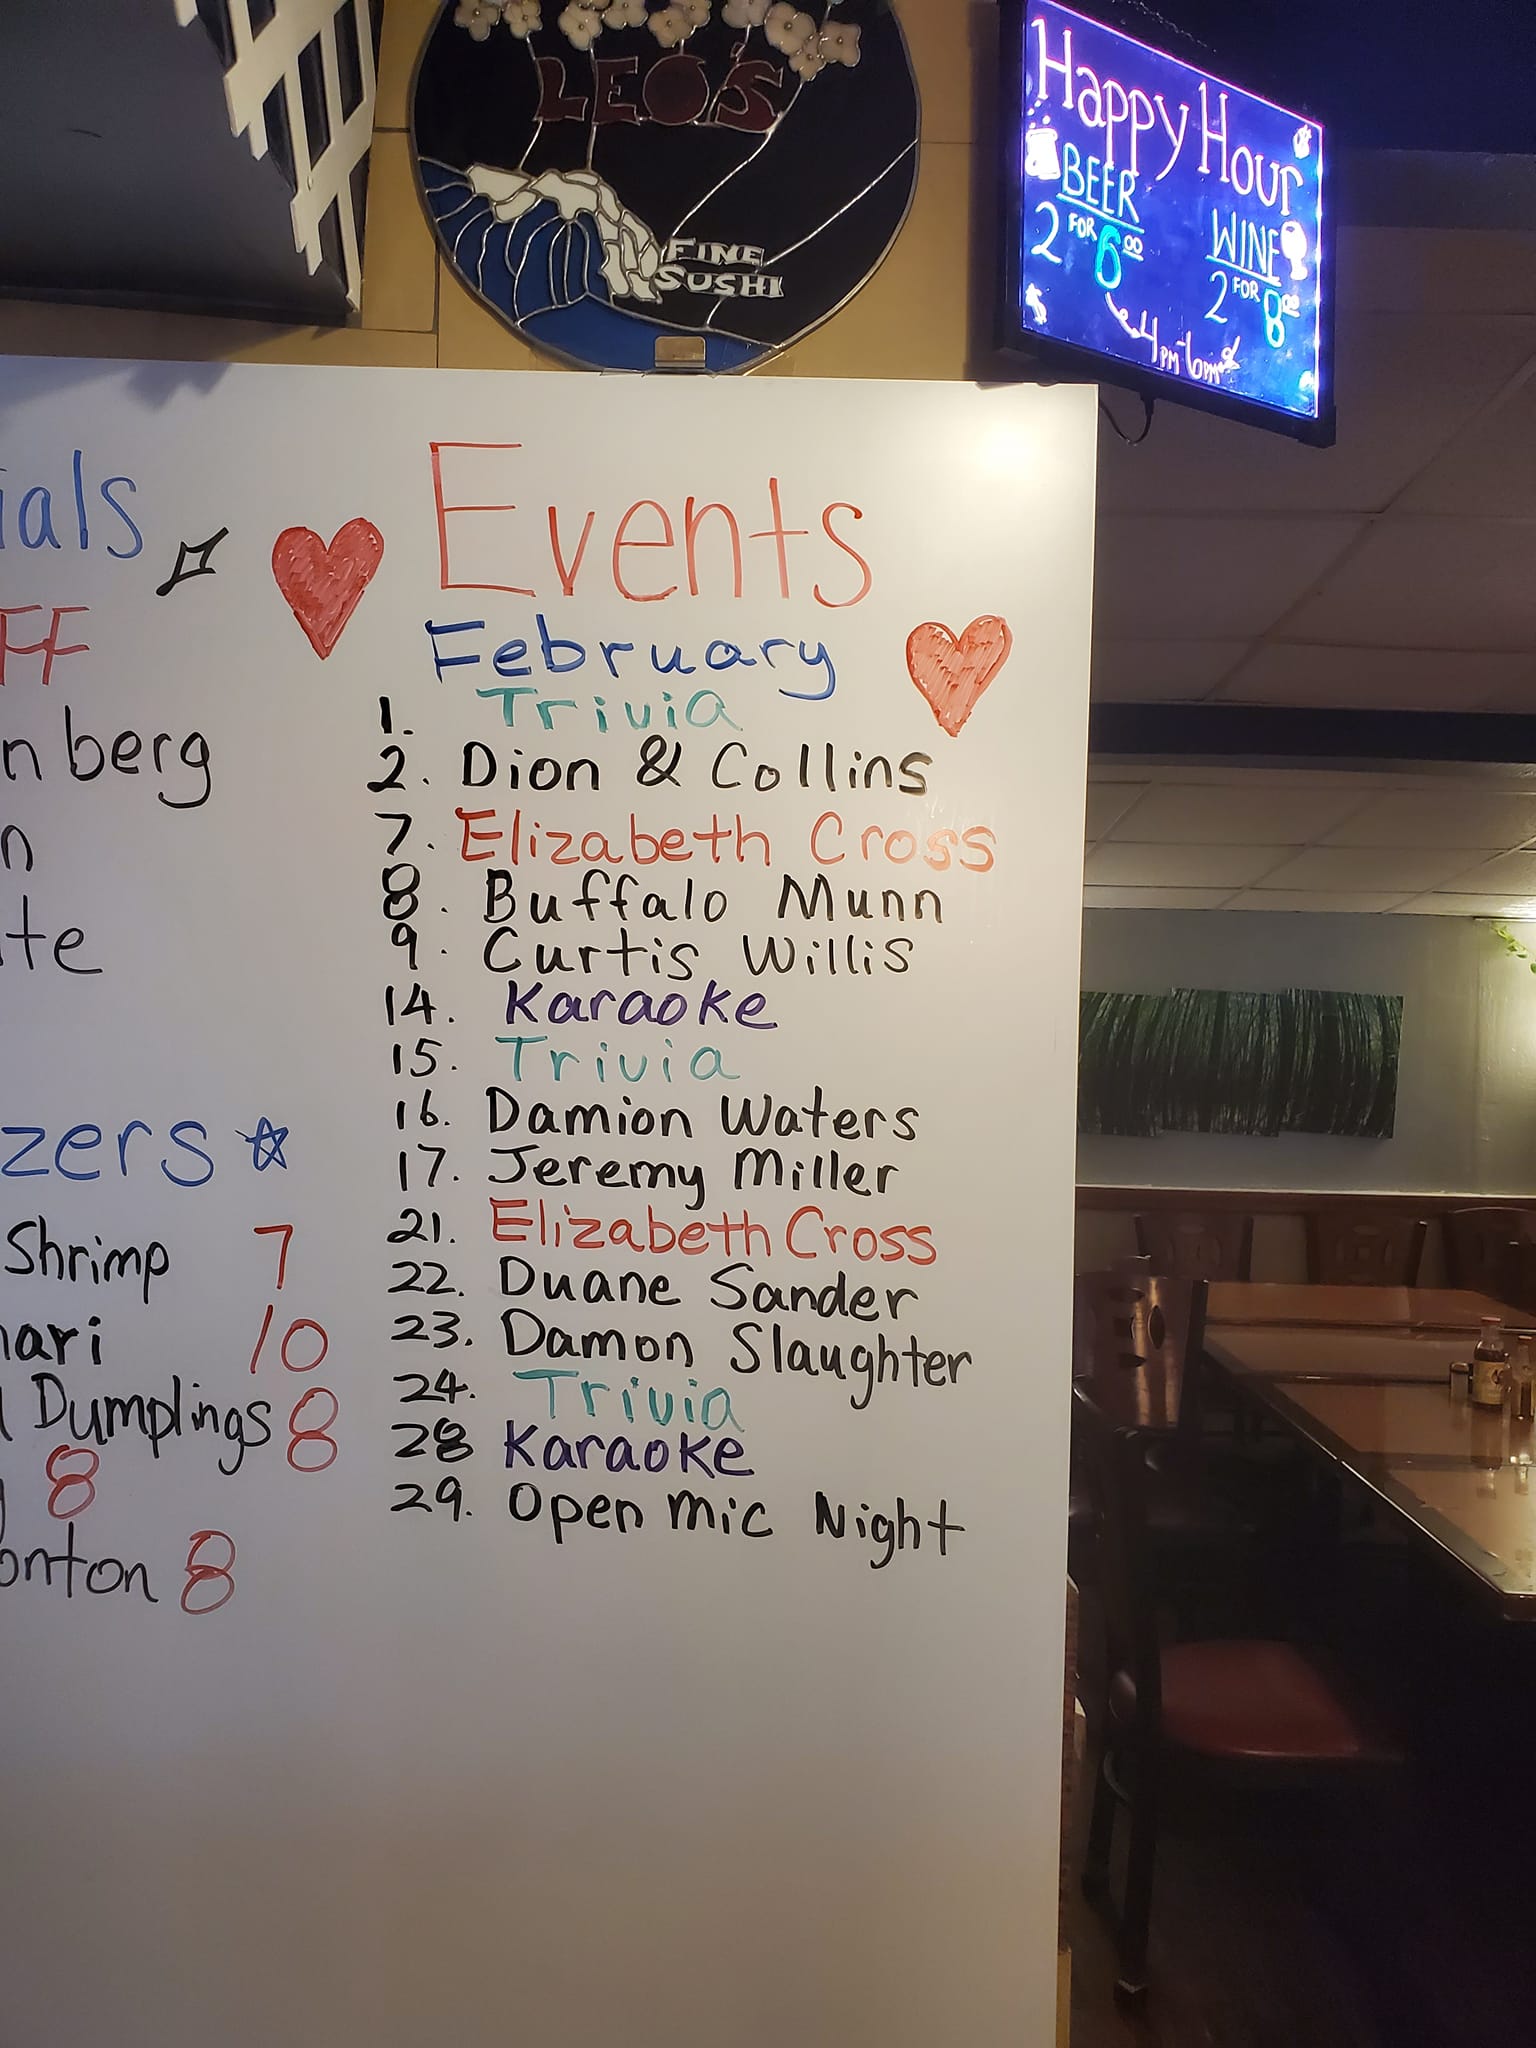 LEO'S
FINE
SUSHI
Happy Hour
BEER
2 FOR 6.00
WINE
2 FOR 8.00
4PM-6PM
ials
FF
nberg
n
te
zers
Shrimp 7
ari 10
Dumplings 8
8
onton 8
Events
February
1. Trivia
2. Dion & Collins
7. Elizabeth Cross
8. Buffalo Munn
9. Curtis Willis
14. Karaoke
15. Trivia
16. Damion Waters
17. Jeremy Miller
21. Elizabeth Cross
22. Duane Sander
23. Damon Slaughter
24. Trivia
28 Karaoke
29. Open mic Night